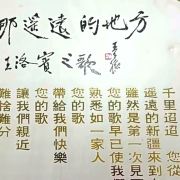 那遙遠的地方
王洛賓之歌
千里迢迢 您從
遙遠的新疆來到
雖然是第一次見
您的歌早已使我們
熟悉如一家人
您的歌
帶給我們快樂
您的歌
讓我們親近
難捨難分